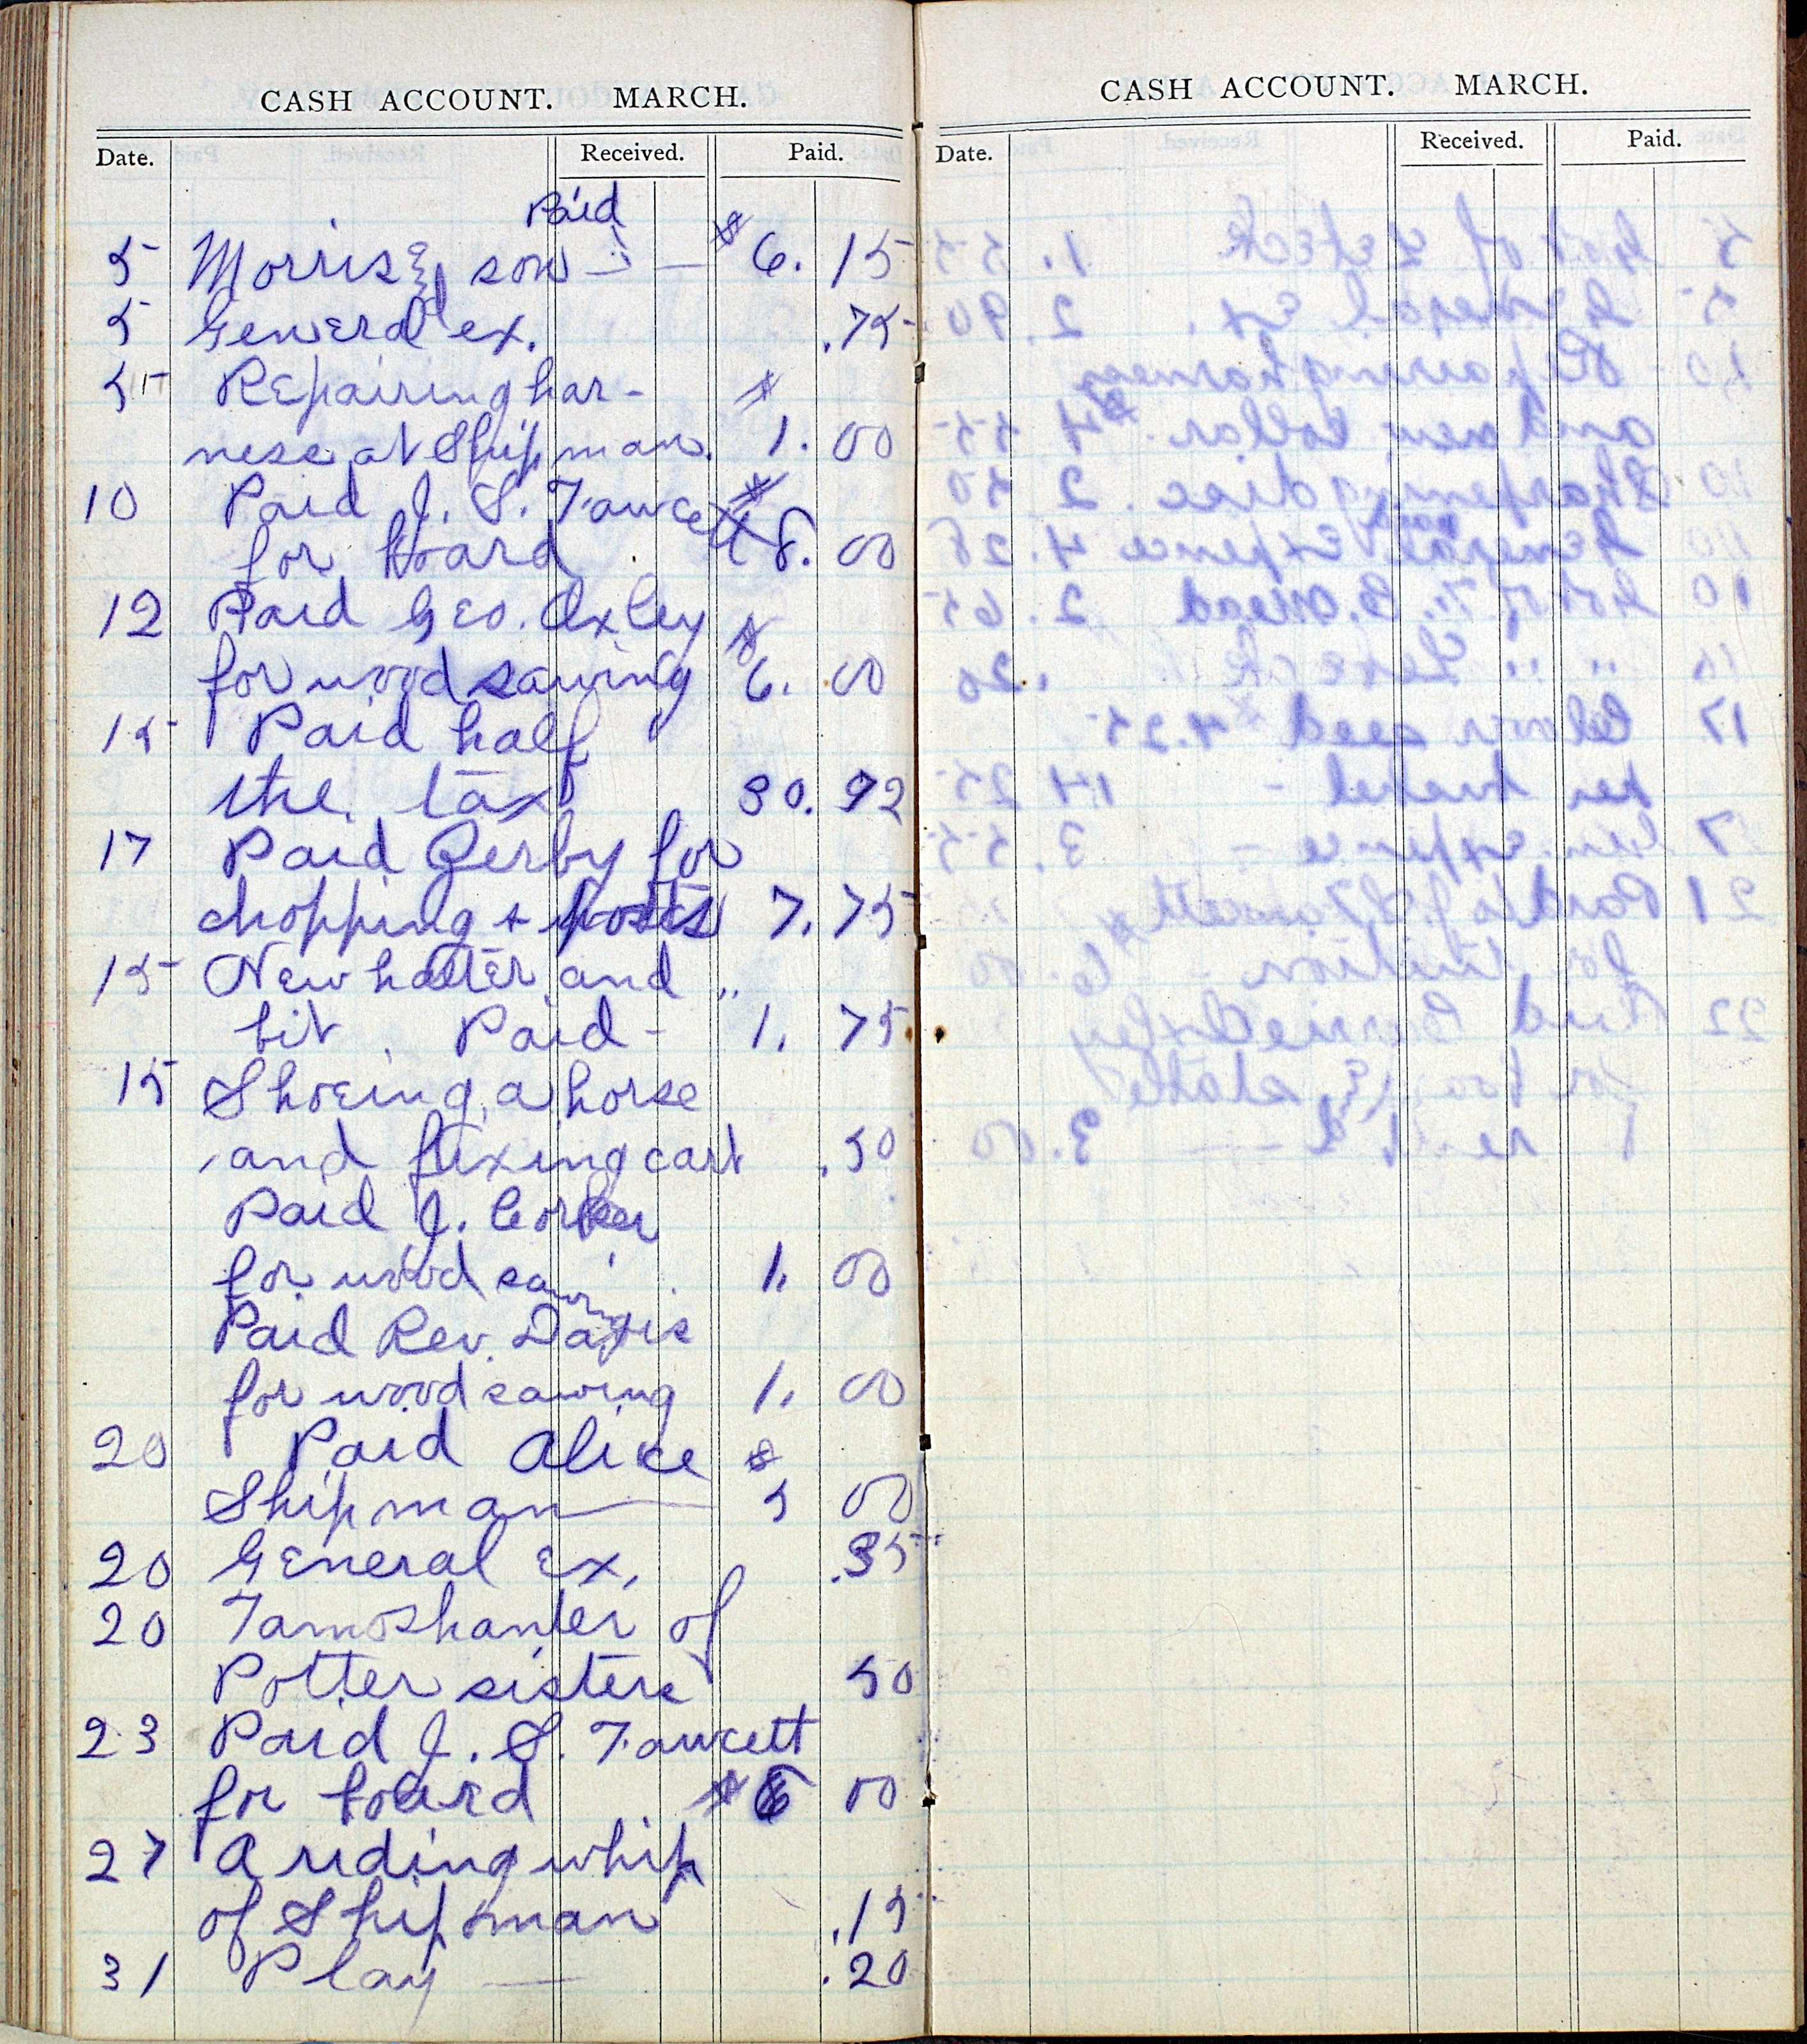 CASH ACCOUNT. MARCH.
Date. Received. Paid.
Paid
5 Morris & son — $6.15
5 General ex. .75
5 Repairing har- $
ness at Shipman. 1.00
10 Paid J. S. Fawcett $
for board 8.00
12 Paid Geo. Axley $
for wood sawing 6.00
15 Paid half
the tax 30.92
17 Paid Gerby for
chopping + posts 7.75
15 New halter and "
bit Paid - 1.75
15 Shoeing a horse
and fixing cart .50
Paid J. Corker
for wood sawing 1.00
Paid Rev. Davis
for wood sawing 1.00
20 Paid Alice $
Shipman — 5 00
20 General Ex. .35
20 Tamoshanter of
Potter sisters 50
23 Paid J. S. Fawcett
for board $6 00
27 A riding whip
of Shipman .15
31 Play — .20
CASH ACCOUNT. MARCH.
Date. Received. Paid.